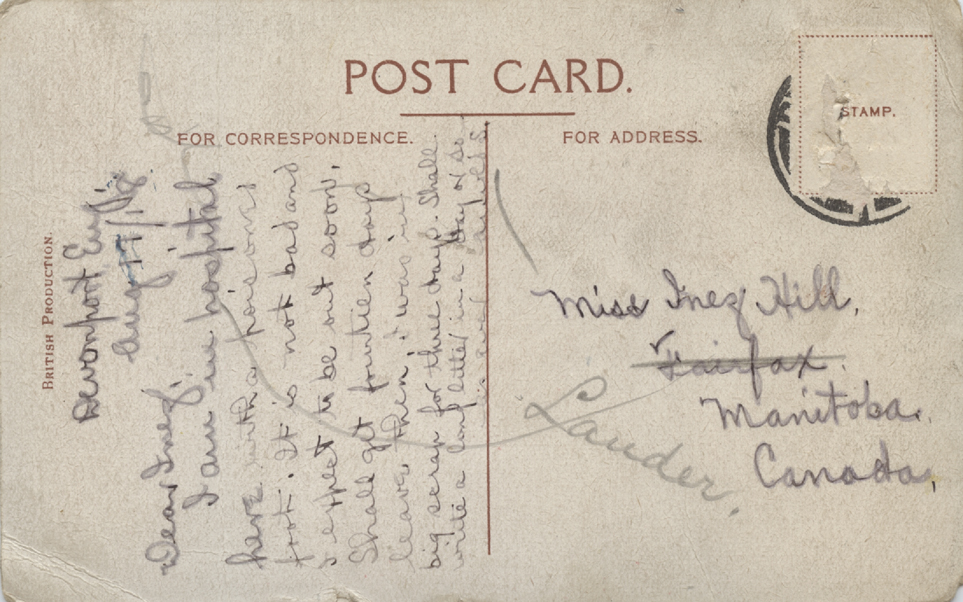 POST CARD.
FOR CORRESPONDENCE.
FOR ADDRESS.
STAMP.
BRITISH PRODUCTION.
Devonport Eng.
Aug 17/18
Dear Inez,
I am in hospital
here with a poisoned
foot. It is not bad and
I expect to be out soon.
Shall get fourteen days
leave then. I was in
big scrap for three days. Shall
write a long letter in a day or so.
Miss Inez Hill,
Fairfax.
Lauder
Manitoba.
Canada,